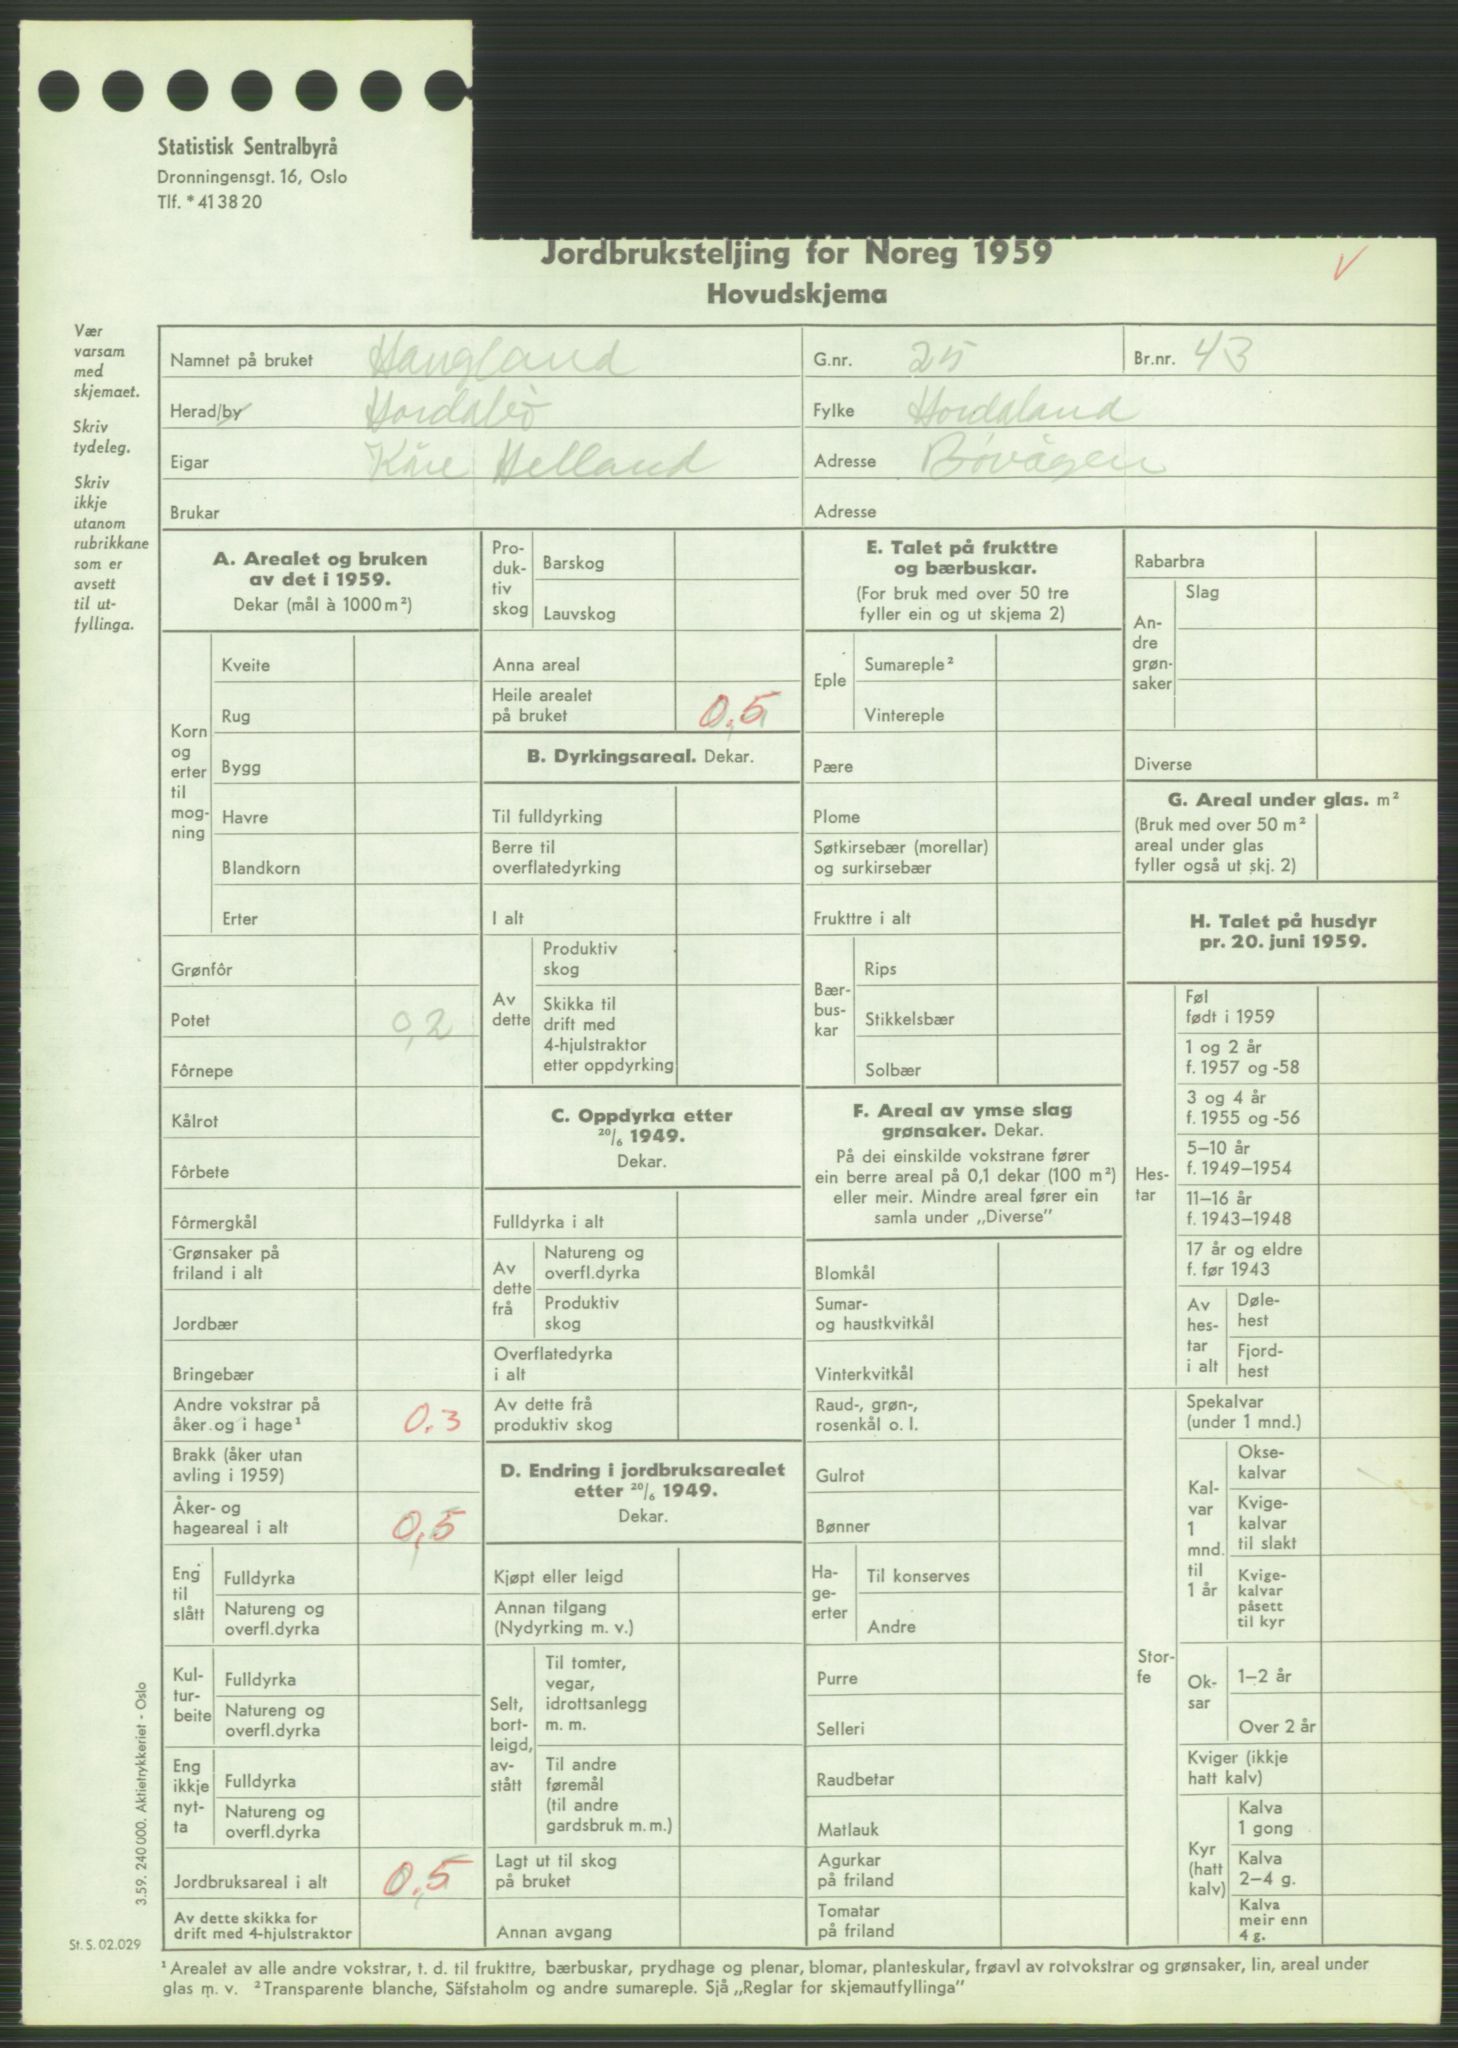 Statistisk Sentralbyrå
Dronningensgt. 16, Oslo
Tlf. * 41 38 20
Jordbruksteljing for Noreg 1959
Hovudskjema
Vær
varsam
med
skjemaet.
Skriv
tydeleg.
Skriv
ikkje
utanom
rubrikkane
som er
avsett
til ut-
fyllinga.
Namnet på bruket Haugland G.nr. 25 Br.nr. 43
Herad/by Hordabø Fylke Hordaland
Eigar Kåre Helland Adresse Bøvågen
Brukar Adresse
A. Arealet og bruken
av det i 1959.
Dekar (mål à 1000 m²)
Korn
og
erter
til
mog-
ning
Kveite
Rug
Bygg
Havre
Blandkorn
Erter
Grønfôr
Potet 0,2
Fôrnepe
Kålrot
Fôrbete
Fôrmergkål
Grønsaker på
friland i alt
Jordbær
Bringebær
Andre vokstrar på
åker og i hage¹ 0.3
Brakk (åker utan
avling i 1959)
Åker- og
hageareal i alt 0,5
Eng
til
slått
Fulldyrka
Natureng og
overfl.dyrka
Kul-
tur-
beite
Fulldyrka
Natureng og
overfl.dyrka
Eng
ikkje
nyt-
ta
Fulldyrka
Natureng og
overfl.dyrka
Jordbruksareal i alt 0,5
Av dette skikka for
drift med 4-hjulstraktor
Pro-
duk-
tiv
skog
Barskog
Lauvskog
Anna areal
Heile arealet
på bruket 0,5
B. Dyrkingsareal. Dekar.
Til fulldyrking
Berre til
overflatedyrking
I alt
Av
dette
Produktiv
skog
Skikka til
drift med
4-hjulstraktor
etter oppdyrking
C. Oppdyrka etter
20/6 1949.
Dekar.
Fulldyrka i alt
Av
dette
frå
Natureng og
overfl.dyrka
Produktiv
skog
Overflatedyrka
i alt
Av dette frå
produktiv skog
D. Endring i jordbruksarealet
etter 20/6 1949.
Dekar.
Kjøpt eller leigd
Annan tilgang
(Nydyrking m. v.)
Selt,
bort-
leigd,
av-
stått
Til tomter,
vegar,
idrottsanlegg
m. m.
Til andre
føremål
(til andre
gardsbruk m. m.)
Lagt ut til skog
på bruket
Annan avgang
E. Talet på frukttre
og bærbuskar.
(For bruk med over 50 tre
fyller ein og ut skjema 2)
Eple
Sumareple²
Vintereple
Pære
Plome
Søtkirsebær (morellar)
og surkirsebær
Frukttre i alt
Bær-
bus-
kar
Rips
Stikkelsbær
Solbær
F. Areal av ymse slag
grønsaker. Dekar.
På dei einskilde vokstrane fører
ein berre areal på 0,1 dekar (100 m²)
eller meir. Mindre areal fører ein
samla under „Diverse”
Blomkål
Sumar-
og haustkvitkål
Vinterkvitkål
Raud-, grøn-,
rosenkål o. l.
Gulrot
Bønner
Ha-
ge-
erter
Til konserves
Andre
Purre
Selleri
Raudbetar
Matlauk
Agurkar
på friland
Tomatar
på friland
Rabarbra
An-
dre
grøn-
saker
Slag
Diverse
G. Areal under glas. m²
(Bruk med over 50 m²
areal under glas
fyller også ut skj. 2)
H. Talet på husdyr
pr. 20. juni 1959.
Hes-
tar
Føl
født i 1959
1 og 2 år
f. 1957 og -58
3 og 4 år
f. 1955 og -56
5–10 år
f. 1949–1954
11–16 år
f. 1943–1948
17 år og eldre
f. før 1943
Av
hes-
tar
i alt
Døle-
hest
Fjord-
hest
Stor-
fe
Spekalvar
(under 1 mnd.)
Kal-
var
1
mnd.
til
1 år
Okse-
kalvar
Kvige-
kalvar
til slakt
Kvige-
kalvar
påsett
til kyr
Ok-
sar
1–2 år
Over 2 år
Kviger (ikkje
hatt kalv)
Kyr
(hatt
kalv)
Kalva
1 gong
Kalva
2–4 g.
Kalva
meir enn
4 g.
3.59. 240 000. Aktietrykkeriet - Oslo
St. S. 02.029
¹ Arealet av alle andre vokstrar, t. d. til frukttre, bærbuskar, prydhage og plenar, blomar, planteskular, frøavl av rotvokstrar og grønsaker, lin, areal under
glas m. v. ² Transparente blanche, Säfstaholm og andre sumareple. Sjå „Reglar for skjemautfyllinga”